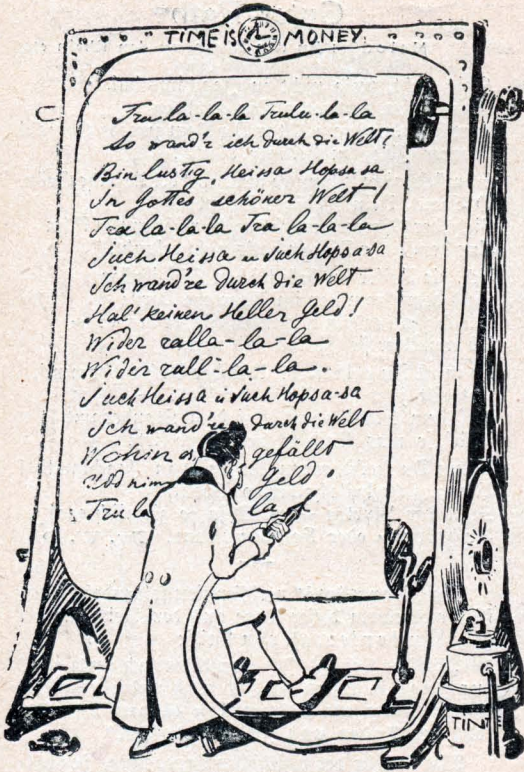 TIME IS MONEY
Tru-la-la-la Trulu-la-la
So wand'r ich durch die Welt!
Bin lustig, Heissa Hopsa sa
In Gottes schöner Welt!
Tra la-la-la Tra la-la-la
Juch Heissa u Juch Hopsa-sa
Ich wand're durch die Welt
Hab' keinen Heller Geld!
Wider ralla-la-la
Wider rall-la-la.
Juch Heissa u Juch Hopsa-sa
Ich wand're durch die Welt
Wohin es gefällt
Und nim Geld!
Tru la la
TINTE